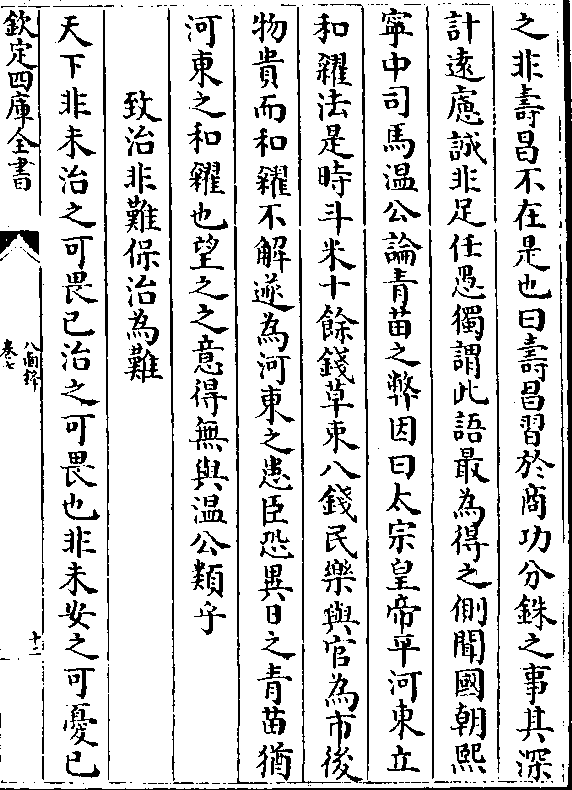 之非壽昌不在是也曰壽昌習於商功分銖之事其深
計遠慮誠非足任愚獨謂此語最為得之側聞國朝熙
寧中司馬温公論青苗之弊因曰太宗皇帝平河東立
和糴法是時斗米十餘錢草束八錢民樂與官為市後
物貴而和糴不解遂為河東之患臣恐異日之青苗猶
河東之和糴也望之之意得無與温公類乎
致治非難保治為難
天下非未治之可畏已治之可畏也非未安之可憂已
欽定四庫全書
八面鋒
卷七
十二